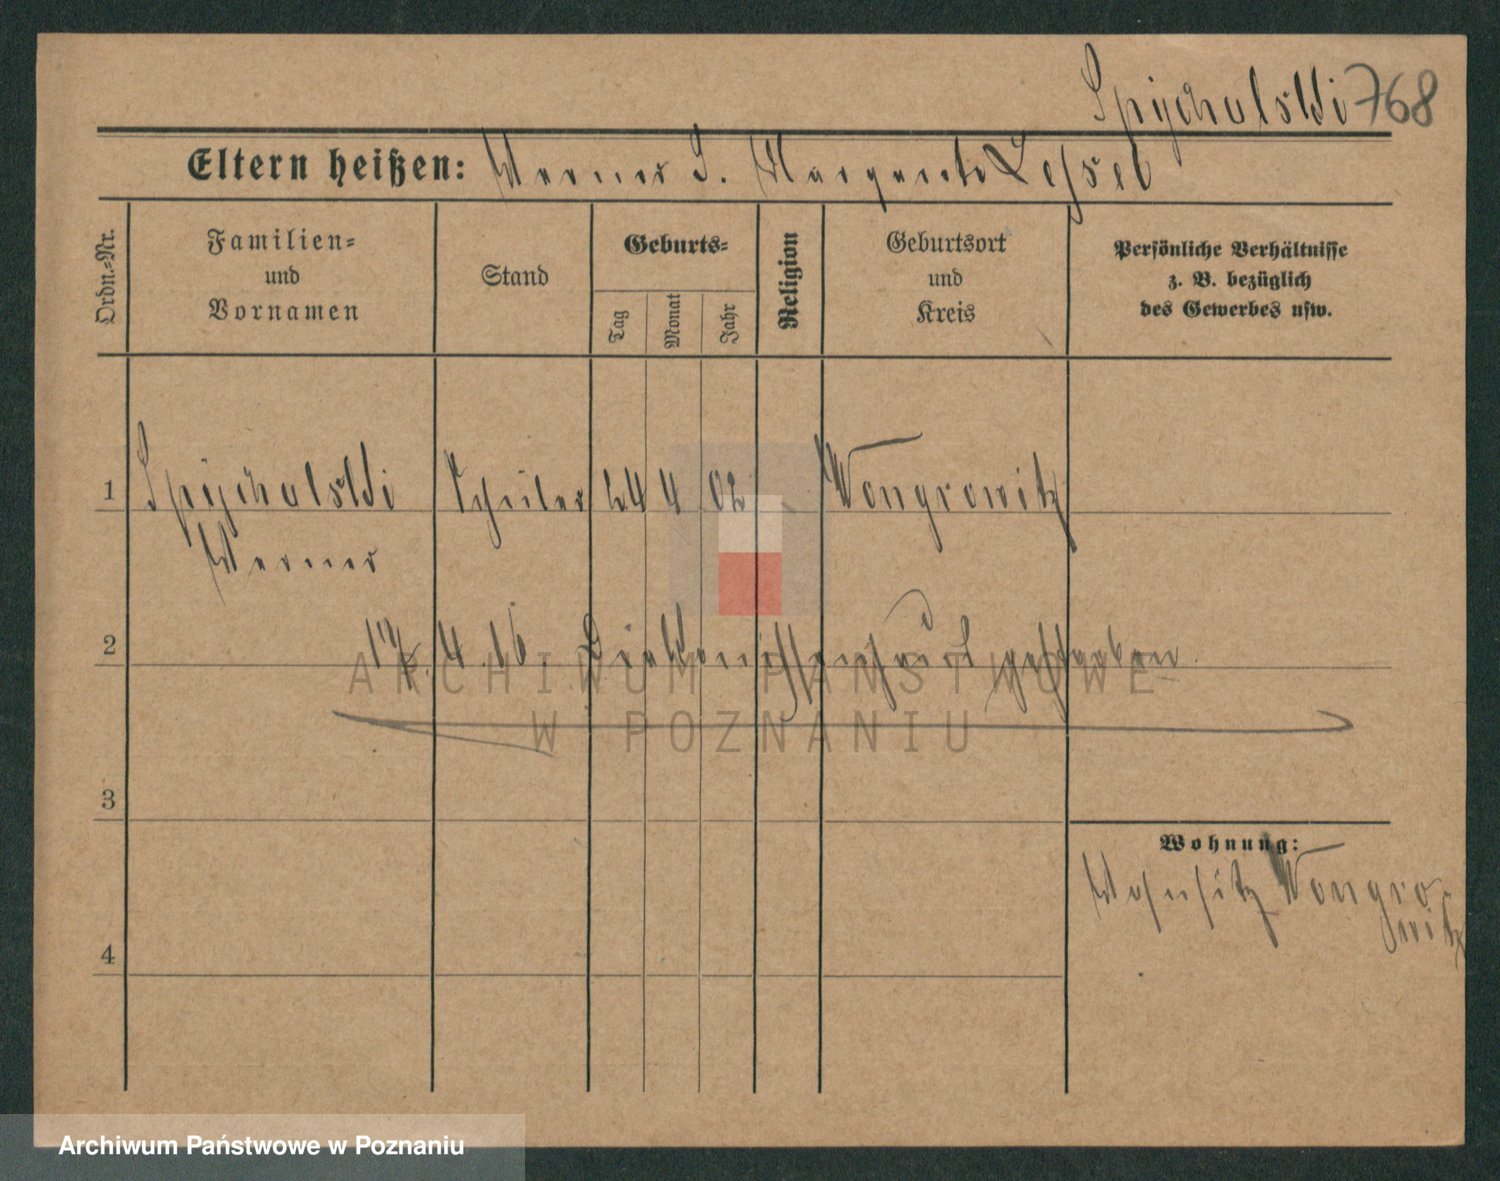 Spychalski 768
Eltern heißen: Werner J. Margarete Lessel
Ordn.=Nr.
Familien=
und
Vornamen
Stand
Geburts=
Tag
Monat
Jahr
Religion
Geburtsort
und
Kreis
Persönliche Verhältnisse
z. B. bezüglich
des Gewerbes usw.
1 Spychalski Schüler 24 4 02 Wongrowitz
Werner
2 4. 16. Diakonissenhaus gestorben
3
4
Wohnung:
Wohnsitz Wongro-
witz
ARCHIWUM PAŃSTWOWE
W POZNANIU
Archiwum Państwowe w Poznaniu